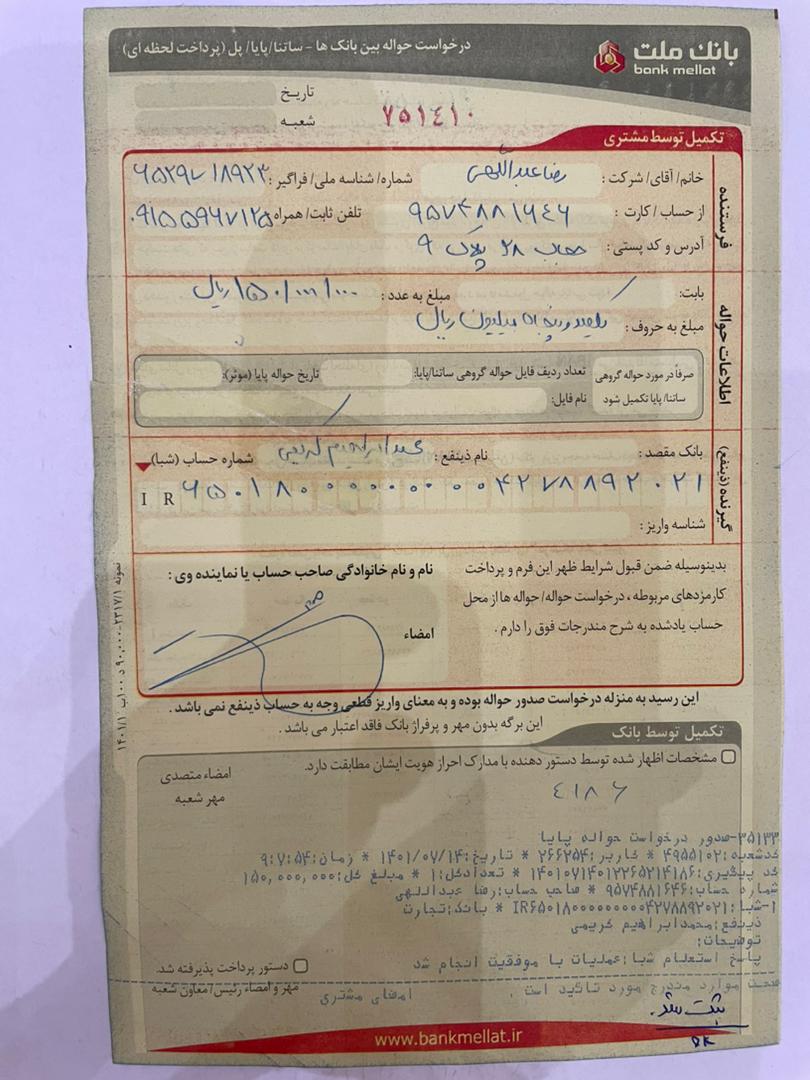 بانك ملت
bank mellat
درخواست حواله بین بانک ها - ساتنا/پایا/ پل (پرداخت لحظه ای)
تاریخ
شعبه
۷۵۱٤۱۰
تکمیل توسط مشتری
فرستنده
خانم/ آقای/ شرکت : رضا عبداللهی شماره/ شناسه ملی/ فراگیر : ۶۵۲۹۷۱۸۹۲۳
از حساب / کارت : ۹۵۷۴۸۸۱۶۴۶ تلفن ثابت/ همراه ۰۹۱۵۵۹۶۷۱۲۵
آدرس و کد پستی : ۲۸ پلاک ۹
اطلاعات حواله
بابت: مبلغ به عدد : ۱۵۰/۰۰۰/۰۰۰ ریال
مبلغ به حروف : یکصد و پنجاه میلیون ریال
صرفاً در مورد حواله گروهی ساتنا/ پایا تکمیل شود
تعداد ردیف فایل حواله گروهی ساتنا/پایا: تاریخ حواله پایا (موثر):
نام فایل:
گیرنده (ذینفع)
بانک مقصد : نام ذینفع : محمد ابراهیم کریمی شماره حساب (شبا)
I R ۶۵۰۱۸۰۰۰۰۰۰۰۰۰۴۲۷۸۸۹۲۰۲۱
شناسه واریز :
بدینوسیله ضمن قبول شرایط ظهر این فرم و پرداخت
کارمزدهای مربوطه ، درخواست حواله/ حواله ها از محل
حساب یادشده به شرح مندرجات فوق را دارم .
نام و نام خانوادگی صاحب حساب یا نماینده وی :
امضاء
این رسید به منزله درخواست صدور حواله بوده و به معنای واریز قطعی وجه به حساب ذینفع نمی باشد .
این برگه بدون مهر و پرفراژ بانک فاقد اعتبار می باشد .
تکمیل توسط بانک
مشخصات اظهار شده توسط دستور دهنده با مدارک احراز هویت ایشان مطابقت دارد.
امضاء متصدی
مهر شعبه
٤۱۸۶
۳۵۱۳۳-صدور درخواست حواله پایا
کدشعبه:۴۹۵۵۱۰۲ * کاربر:۲۶۶۲۵۴ * تاریخ:۱۴۰۱/۰۷/۱۴ * زمان:۹:۷:۵۴
کد پیگیری:۱۴۰۱۰۷۱۴۰۱۲۲۶۵۲۱۴۱۸۶ * تعدادکل:۱ * مبلغ کل:۱۵۰,۰۰۰,۰۰۰
شماره حساب:۹۵۷۴۸۸۱۶۴۶ * صاحب حساب:رضا عبداللهی
۱-شبا:IR۶۵۰۱۸۰۰۰۰۰۰۰۰۰۴۲۷۸۸۹۲۰۲۱ * بانک:تجارت
ذینفع:محمدابراهیم کریمی
توضیحات:
پاسخ استعلام شبا:عملیات با موفقیت انجام شد
صحت موارد مندرج مورد تائید است . امضای مشتری
دستور پرداخت پذیرفته شد.
مهر و امضاء رئیس/ معاون شعبه
ثبت شد.
OK
www.bankmellat.ir